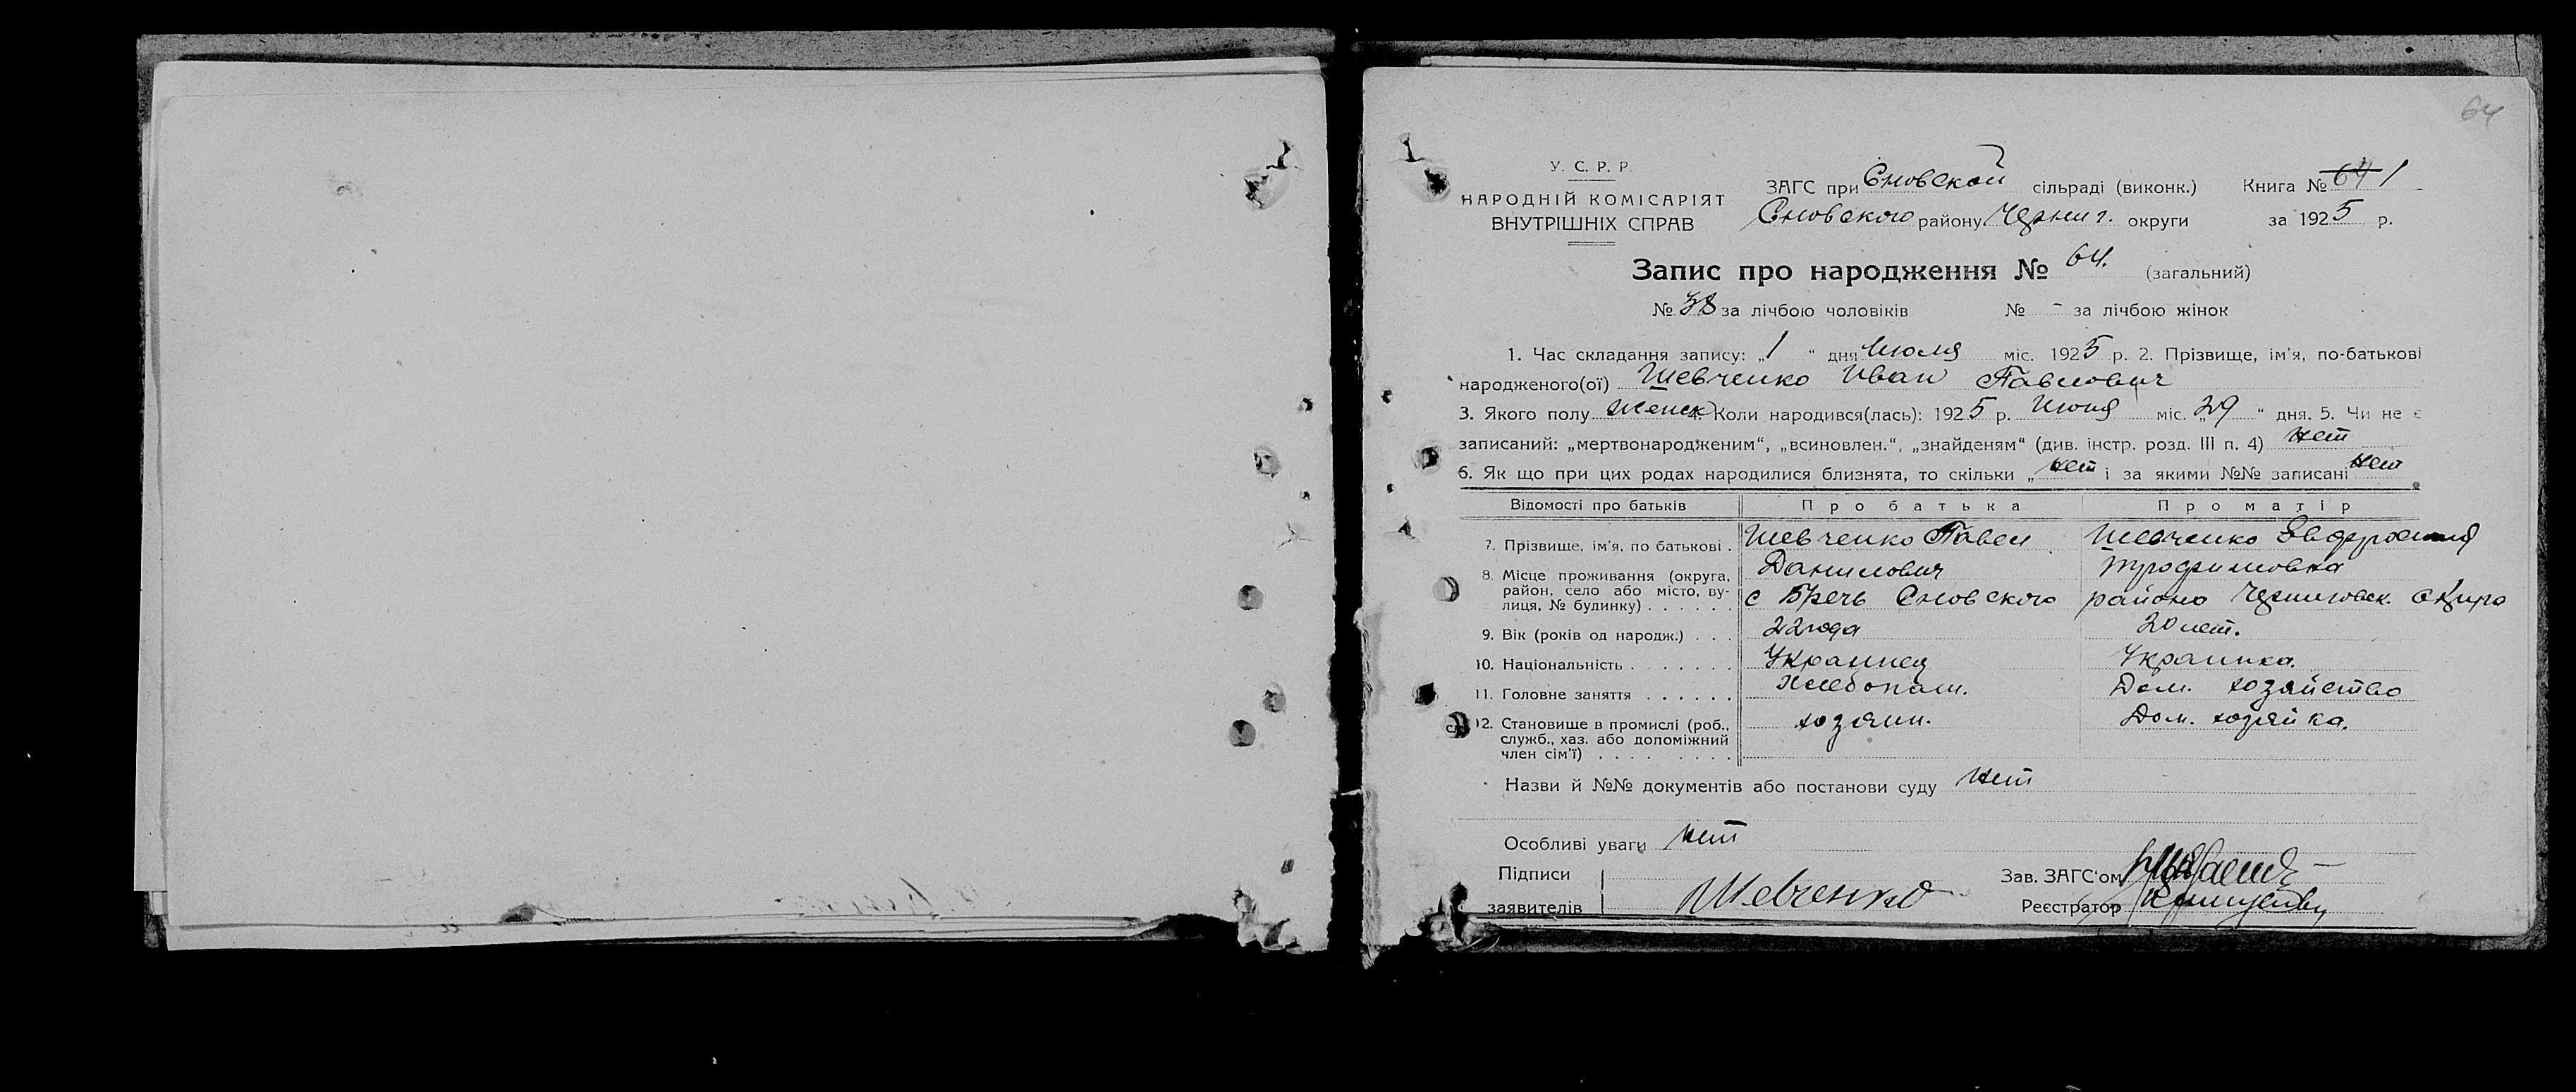 64
У. С. Р. Р.
НАРОДНІЙ КОМІСАРІЯТ
ВНУТРІШНІХ СПРАВ
ЗАГС при Сновской сільраді (виконк.) Книга № 64 1
Сновского району Черниг. округи за 1925 р.
Запис про народження № 64. (загальний)
№ 38 за лічбою чоловіків № - за лічбою жінок
1. Час складання запису: „1“ дня Июля міс. 1925 р. 2. Прізвище, ім’я, по-батькові
народженого(ої) Шевченко Иван Павлович
3. Якого полу женск 4. Коли народився(лась): 1925 р. Июня міс. „29“ дня. 5. Чи не є
записаний: „мертвонародженим“, „всиновлен.“, „знайденям“ (див. інстр. розд. III п. 4) нет
6. Як що при цих родах народилися близнята, то скільки „ нет і за якими №№ записані нет
Відомості про батьків Про батька Про матір
7. Прізвище, ім’я, по батькові . Шевченко Павел Шевченко Евфросиния
Данилович Трофимовна
8. Місце проживання (округа,
район, село або місто, ву-
лиця, № будинку) . . . . . . с Бречь Сновского района Черниговск. округа
9. Вік (років од народж.) . . . 22 года 20 лет.
10. Національність . . . . . . . Украинец Украинка.
11. Головне заняття . . . . . . Хлебопаш. Дом. хозяйство
12. Становище в промислі (роб.,
служб., хаз. або допоміжний
член сім’ї) . . . . . . . . хозяин. Дом. хозяйка.
Назви й №№ документів або постанови суду нет
Особливі уваги нет
Підписи
заявителів Шевченко
Зав. ЗАГС‘ом
Реєстратор